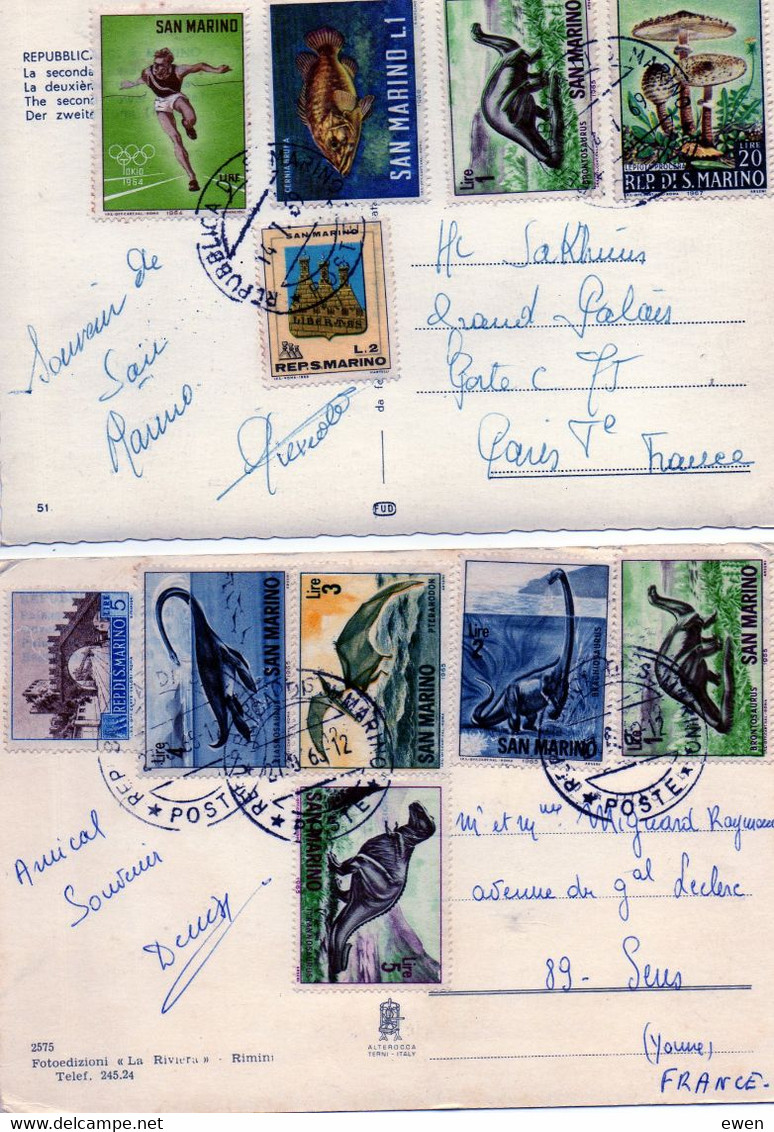 SAN MARINO
TOKIO
1964
LIRE
1964
CERNIA BRUNA
SAN MARINO L.1
Lire 1
BRONTOSAURUS
SAN MARINO
1965
LEPIOTA PROCERA
LIRE
20
REP. DI S. MARINO
1967
REPUBBLIC
La seconda
La deuxièm
The second
Der zweite
REPUBBLICA
SAN MARINO
LIBERTAS
L.2
REP.S.MARINO
Souvenir de
San
Marino
Grand Palais
Porte C
Paris
France
da
51
FUD
5
LIRE
REP. DI S. MARINO
Lire 4
ELASMOSAURUS
SAN MARINO
1965
Lire 3
PTERANODON
1965
SAN MARINO
Lire 2
BRACHIOSAURUS
SAN MARINO
1965
Lire 1
BRONTOSAURUS
1965
SAN MARINO
POSTE
POSTE
POSTE
SAN MARINO
1965
Lire 5
Amical
Souvenir
m et mme Mignard Raymond
avenue du gal Leclerc
89 - Sens
(Yonne)
FRANCE-
2575
Fotoedizioni « La Riviera » - Rimini
Telef. 245.24
ALTEROCCA
TERNI - ITALY
ewen